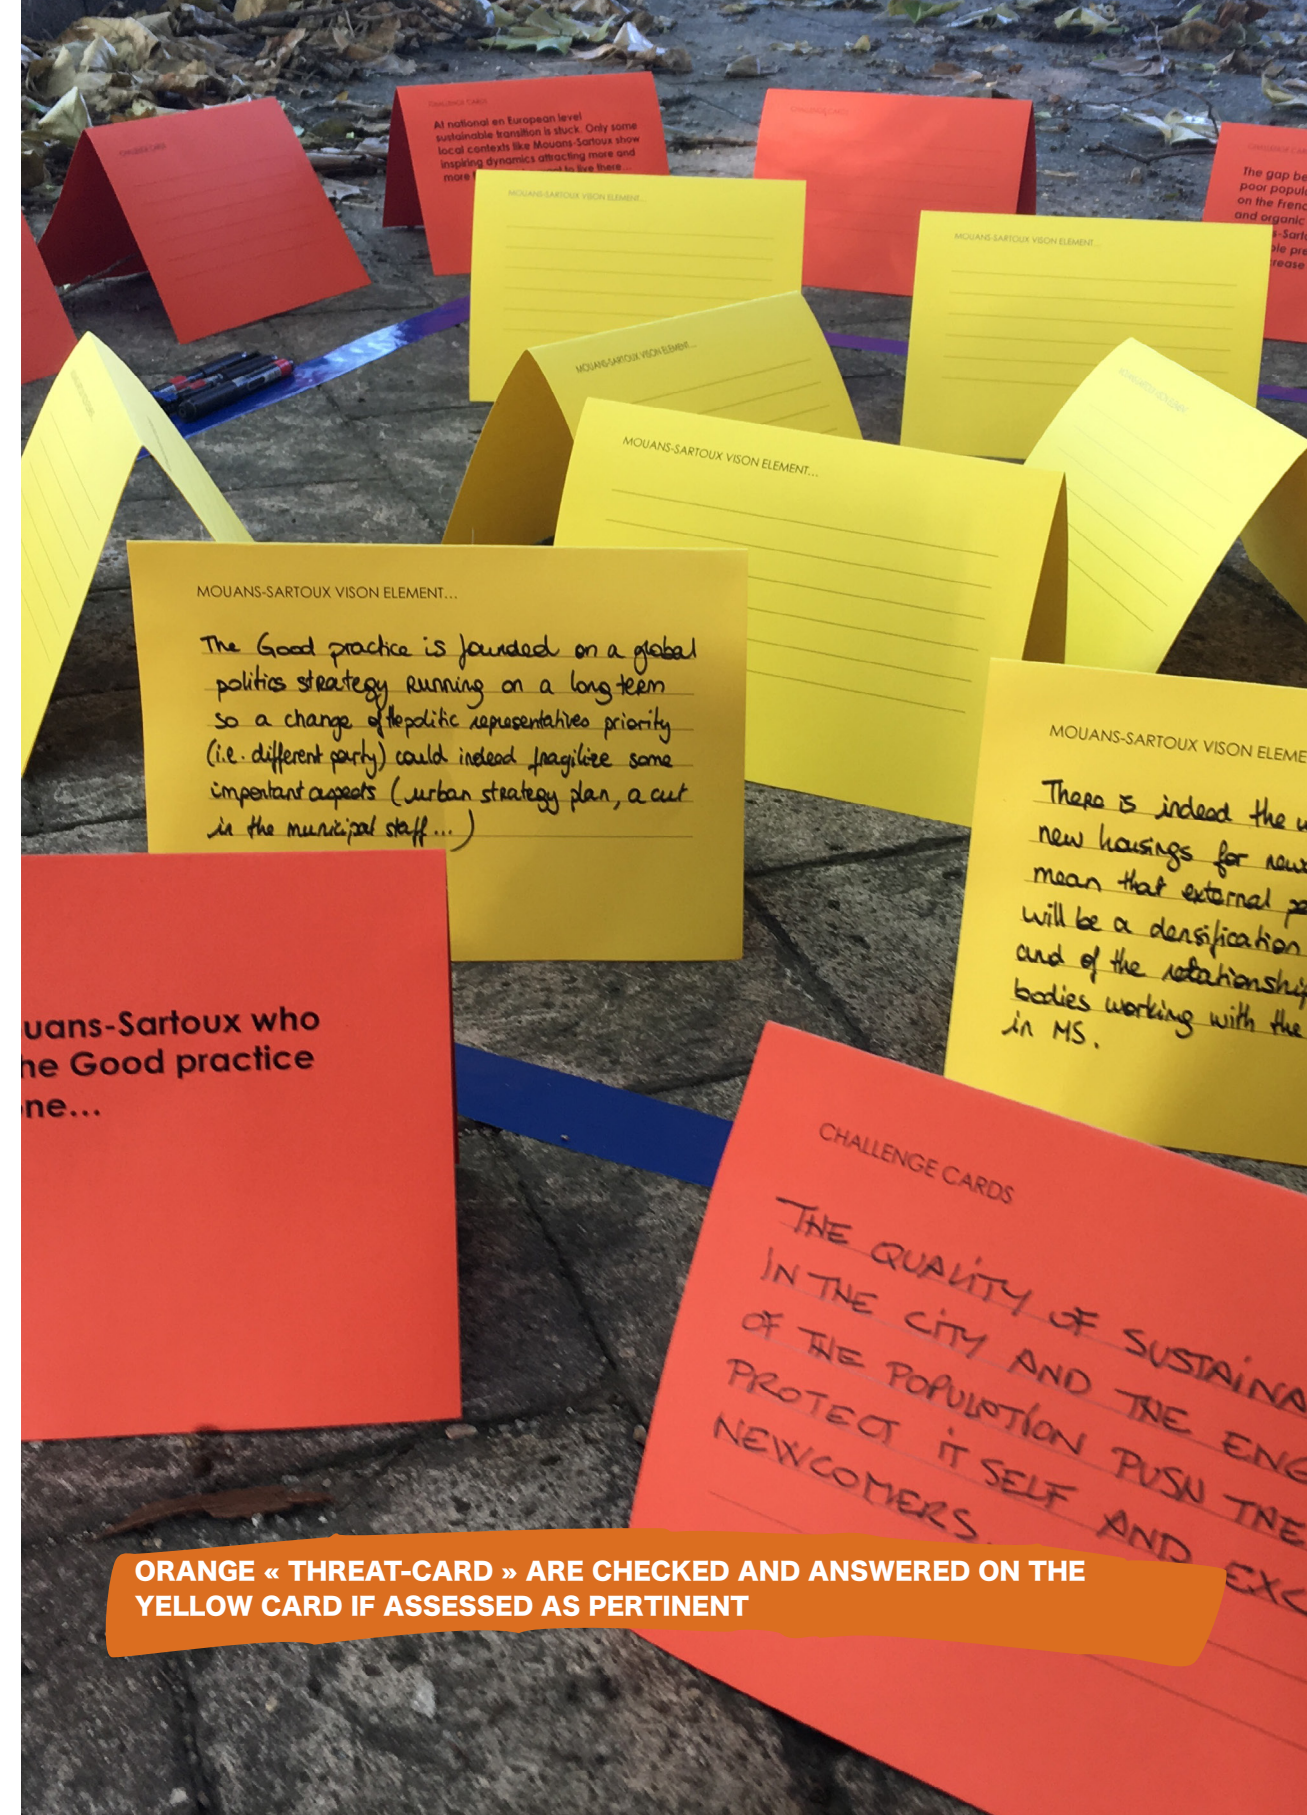 CHALLENGE CARDS
At national en European level
sustainable transition is stuck. Only some
local contexts like Mouans-Sartoux show
inspiring dynamics attracting more and
more
to live there...
CHALLENGE CARDS
CHALLENGE CARDS
The gap be
poor popul
on the Fren
and organic
s-Sart
ble pre
rease
MOUANS-SARTOUX VISON ELEMENT...
MOUANS-SARTOUX VISON ELEMENT...
MOUANS-SARTOUX VISON ELEMENT...
MOUANS-SARTOUX VISON ELEMENT...
MOUANS-SARTOUX VISON ELEMENT...
The Good practice is founded on a global
politics strategy running on a long term
so a change of the politic representatives priority
(i.e. different party) could indeed fragilize some
important aspects (urban strategy plan, a cut
in the municipal staff...)
MOUANS-SARTOUX VISON ELEME
There is indeed the w
new housings for new
mean that external
will be a densification
and of the relationship
bodies working with the
in MS.
uans-Sartoux who
he Good practice
ne...
CHALLENGE CARDS
THE QUALITY OF SUSTAINA
IN THE CITY AND THE ENG
OF THE POPULATION PUSH THE
PROTECT IT SELF AND EXC
NEWCOMERS.
ORANGE « THREAT-CARD » ARE CHECKED AND ANSWERED ON THE
YELLOW CARD IF ASSESSED AS PERTINENT